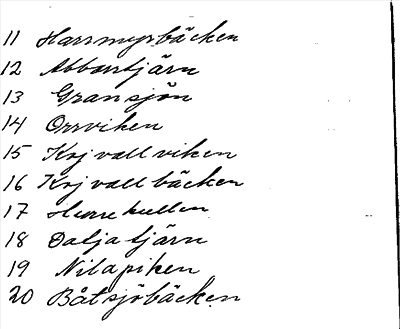 11 Harrmyrbäcken
12 Abborrtjärn
13 Gransjön
14 Orrviken
15 Krjvallviken
16 Krjvallbäcken
17 Hurrekullen
18 Daljatjärn
19 Nilapiken
20 Båtsjöbäcken